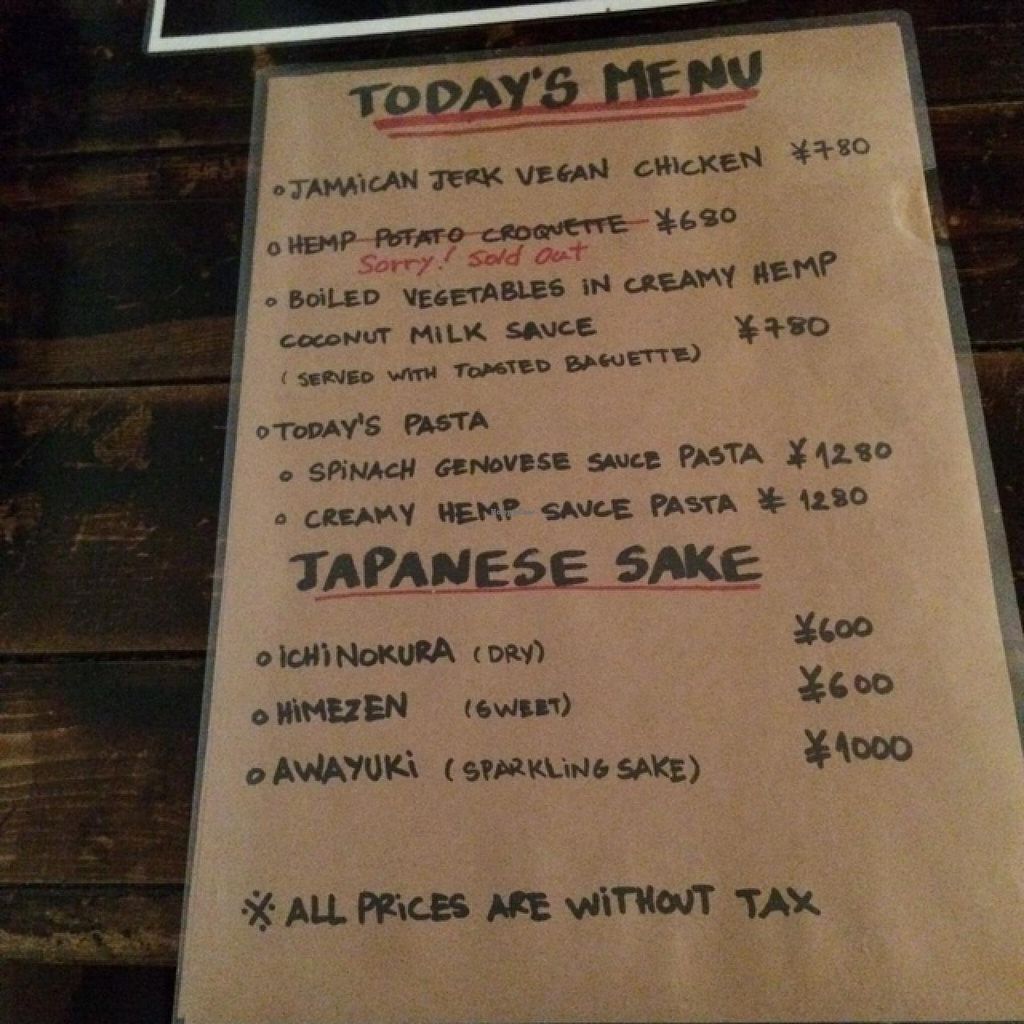 TODAY'S MENU
○ JAMAiCAN JERK VEGAN CHICKEN ¥780
○ HEMP POTATO CROQUETTE ¥680
Sorry! Sold Out
○ BOiLED VEGETABLES iN CREAMY HEMP
COCONUT MILK SAUCE ¥780
(SERVED WITH TOASTED BAGUETTE)
○ TODAY'S PASTA
○ SPiNACH GENOVESE SAUCE PASTA ¥1280
○ CREAMY HEMP SAUCE PASTA ¥1280
JAPANESE SAKE
○ iCHiNOKURA (DRY) ¥600
○ HiMEZEN (SWEET) ¥600
○ AWAYUKi (SPARKLiNG SAKE) ¥1000
※ ALL PRiCES ARE WiTHOUT TAX